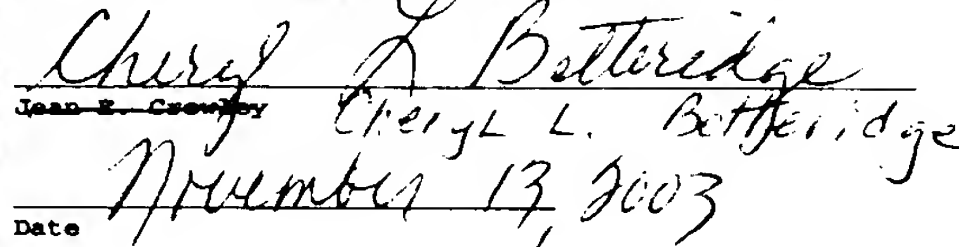 Cheryl L Betteridge
Jean E. Crowley Cheryl L. Betteridge
November 13, 2003
Date